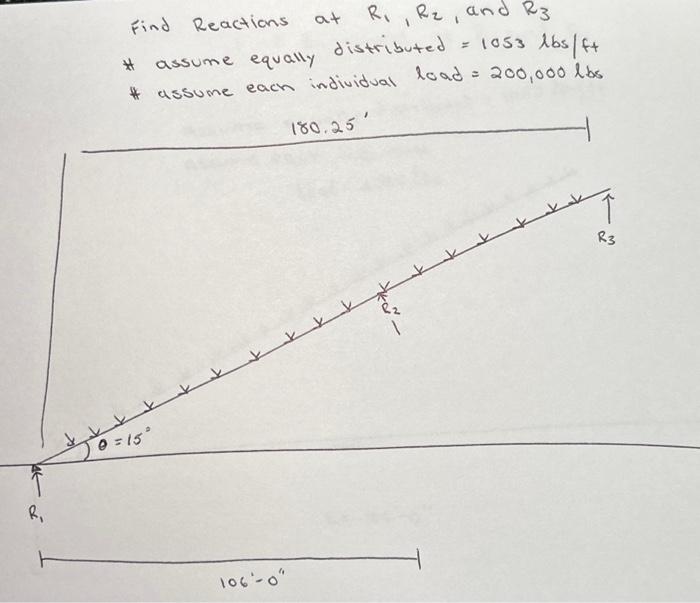 Find Reactions at R1, R2, and R3
* assume equally distributed = 1053 lbs/ft
* assume each individual load = 200,000 lbs
180.25'
R3
R2
θ = 15°
R1
106'-0"